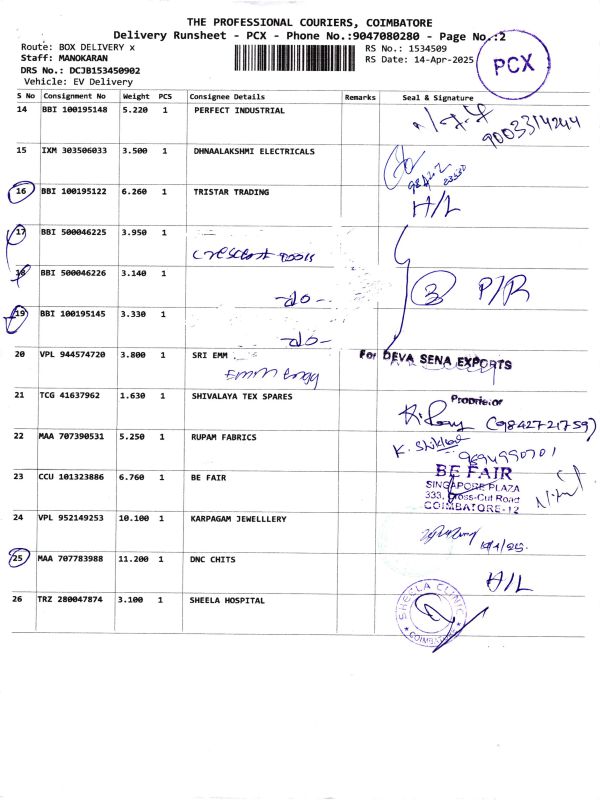 THE PROFESSIONAL COURIERS, COIMBATORE
Delivery Runsheet - PCX - Phone No.:9047080280 - Page No.:2
Route: BOX DELIVERY x
RS No.: 1534509
Staff: MANOKARAN
RS Date: 14-Apr-2025
PCX
DRS No.: DCJB153450902
Vehicle: EV Delivery
S No Consignment No Weight PCS Consignee Details Remarks Seal & Signature
14 BBI 100195148 5.220 1 PERFECT INDUSTRIAL
9003314244
15 IXM 303506033 3.500 1 DHNAALAKSHMI ELECTRICALS
16 BBI 100195122 6.260 1 TRISTAR TRADING H/L
17 BBI 500046225 3.950 1
18 BBI 500046226 3.140 1 -do- 3 P/R
19 BBI 100195145 3.330 1 -do-
20 VPL 944574720 3.800 1 SRI EMM For DEVA SENA EXPORTS
21 TCG 41637962 1.630 1 SHIVALAYA TEX SPARES Proprietor
(9842721759)
22 MAA 707390531 5.250 1 RUPAM FABRICS
9694990701
23 CCU 101323886 6.760 1 BE FAIR BE FAIR
SINGAPORE PLAZA
333, Cross-Cut Road
COIMBATORE-12
24 VPL 952149253 10.100 1 KARPAGAM JEWELLLERY
25 MAA 707783988 11.200 1 DNC CHITS H/L
26 TRZ 280047874 3.100 1 SHEELA HOSPITAL SHEELA CLINIC
COIMBATORE